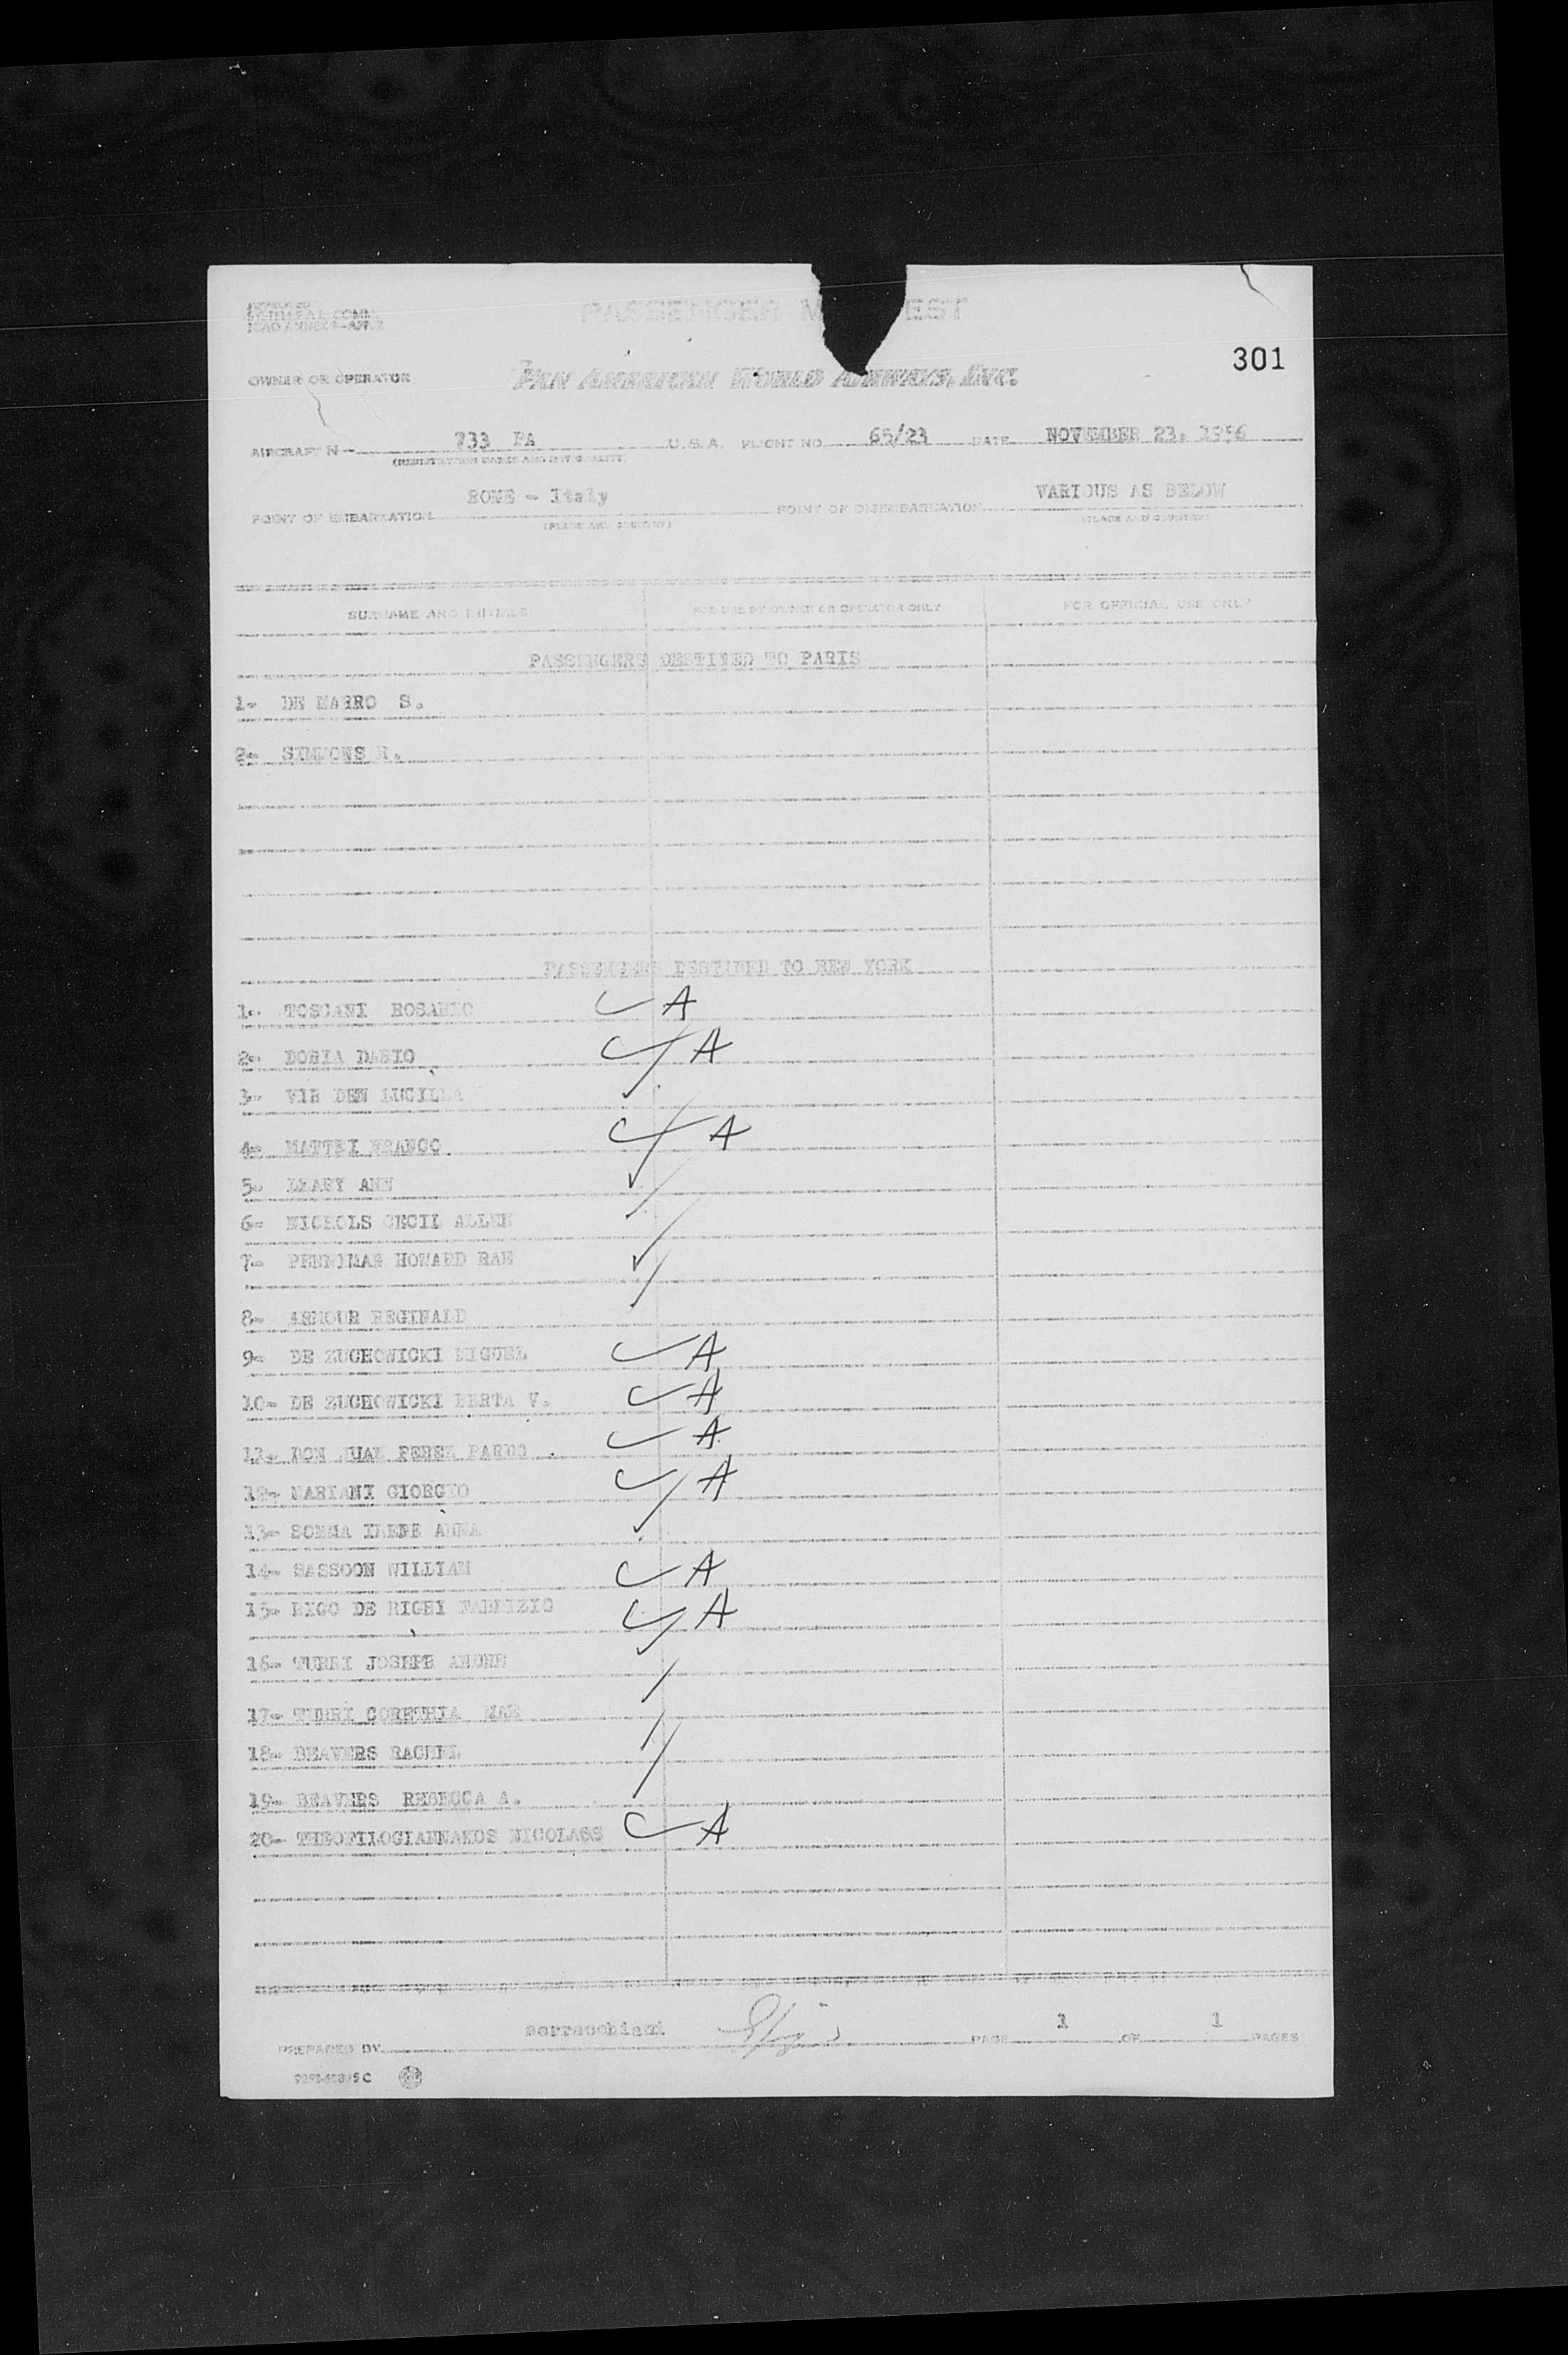 SYSTEM F.A.L. COMM.
ICAO ANNEX 9-APP. 2
PASSENGER M EST
301
OWNER OR OPERATOR PAN AMERICAN WORLD AIRWAYS, INC.
AIRCRAFT N- 733 PA U.S.A. FLIGHT NO. 65/23 DATE NOVEMBER 23, 1956
(REGISTRATION MARKS AND NATIONALITY)
POINT OF EMBARKATION ROME - Italy POINT OF DISEMBARKATION VARIOUS AS BELOW
(PLACE AND COUNTRY) (PLACE AND COUNTRY)
SURNAME AND INITIALS FOR USE BY OWNER OR OPERATOR ONLY FOR OFFICIAL USE ONLY
PASSENGERS DESTINED TO PARIS
1- DE S.
2- SIMMONS R.
PASSENGERS DESTINED TO NEW YORK
1- TOSCANI ROSARIO A
2- DORIA DARIO A
3- VIE DEN LUCILLA
4- MATTEI FRANCO A
5- ANN
6- NICHOLS CECIL ALLEN
7- PENNIMAN HOWARD RAE
8- ARMOUR REGINALD
9- DE ZUCHOWICKI MIGUEL A
10- DE ZUCHOWICKI BERTA V. A
11- DON JUAN PEREZ PARDO A
12- MARIANI GIORGIO A
13- SOMMA IRENE ANNA
14- SASSOON WILLIAM A
15- RIGO DE RIGHI FABRIZIO A
16- TURRI JOSEPH ANDRE
17- TURRI CORETHIA MAE
18- BEAVERS RACHEL
19- BEAVERS REBECCA A.
20- THEOFILOGIANNAKOS NICOLAOS A
PREPARED BY serracchiani PAGE 1 OF 1 PAGES